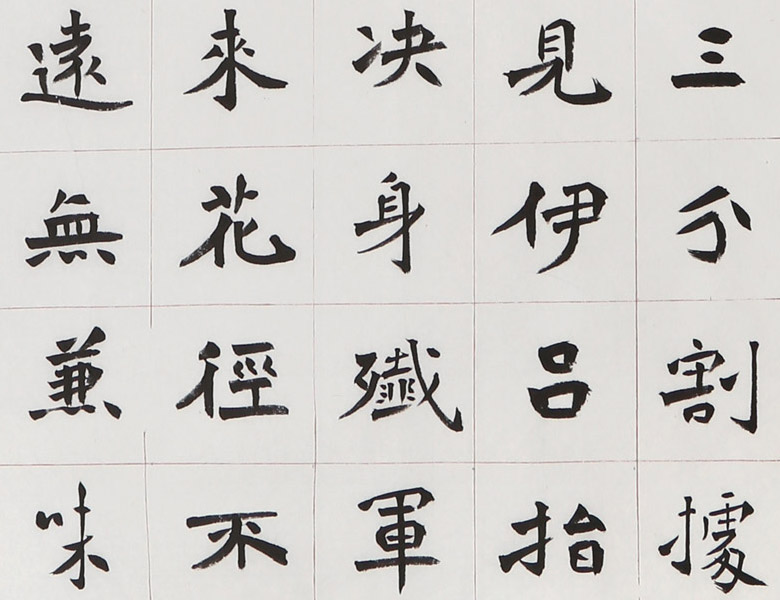 三分割據
見伊吕指
决身殲軍
來花徑不
遠無兼味